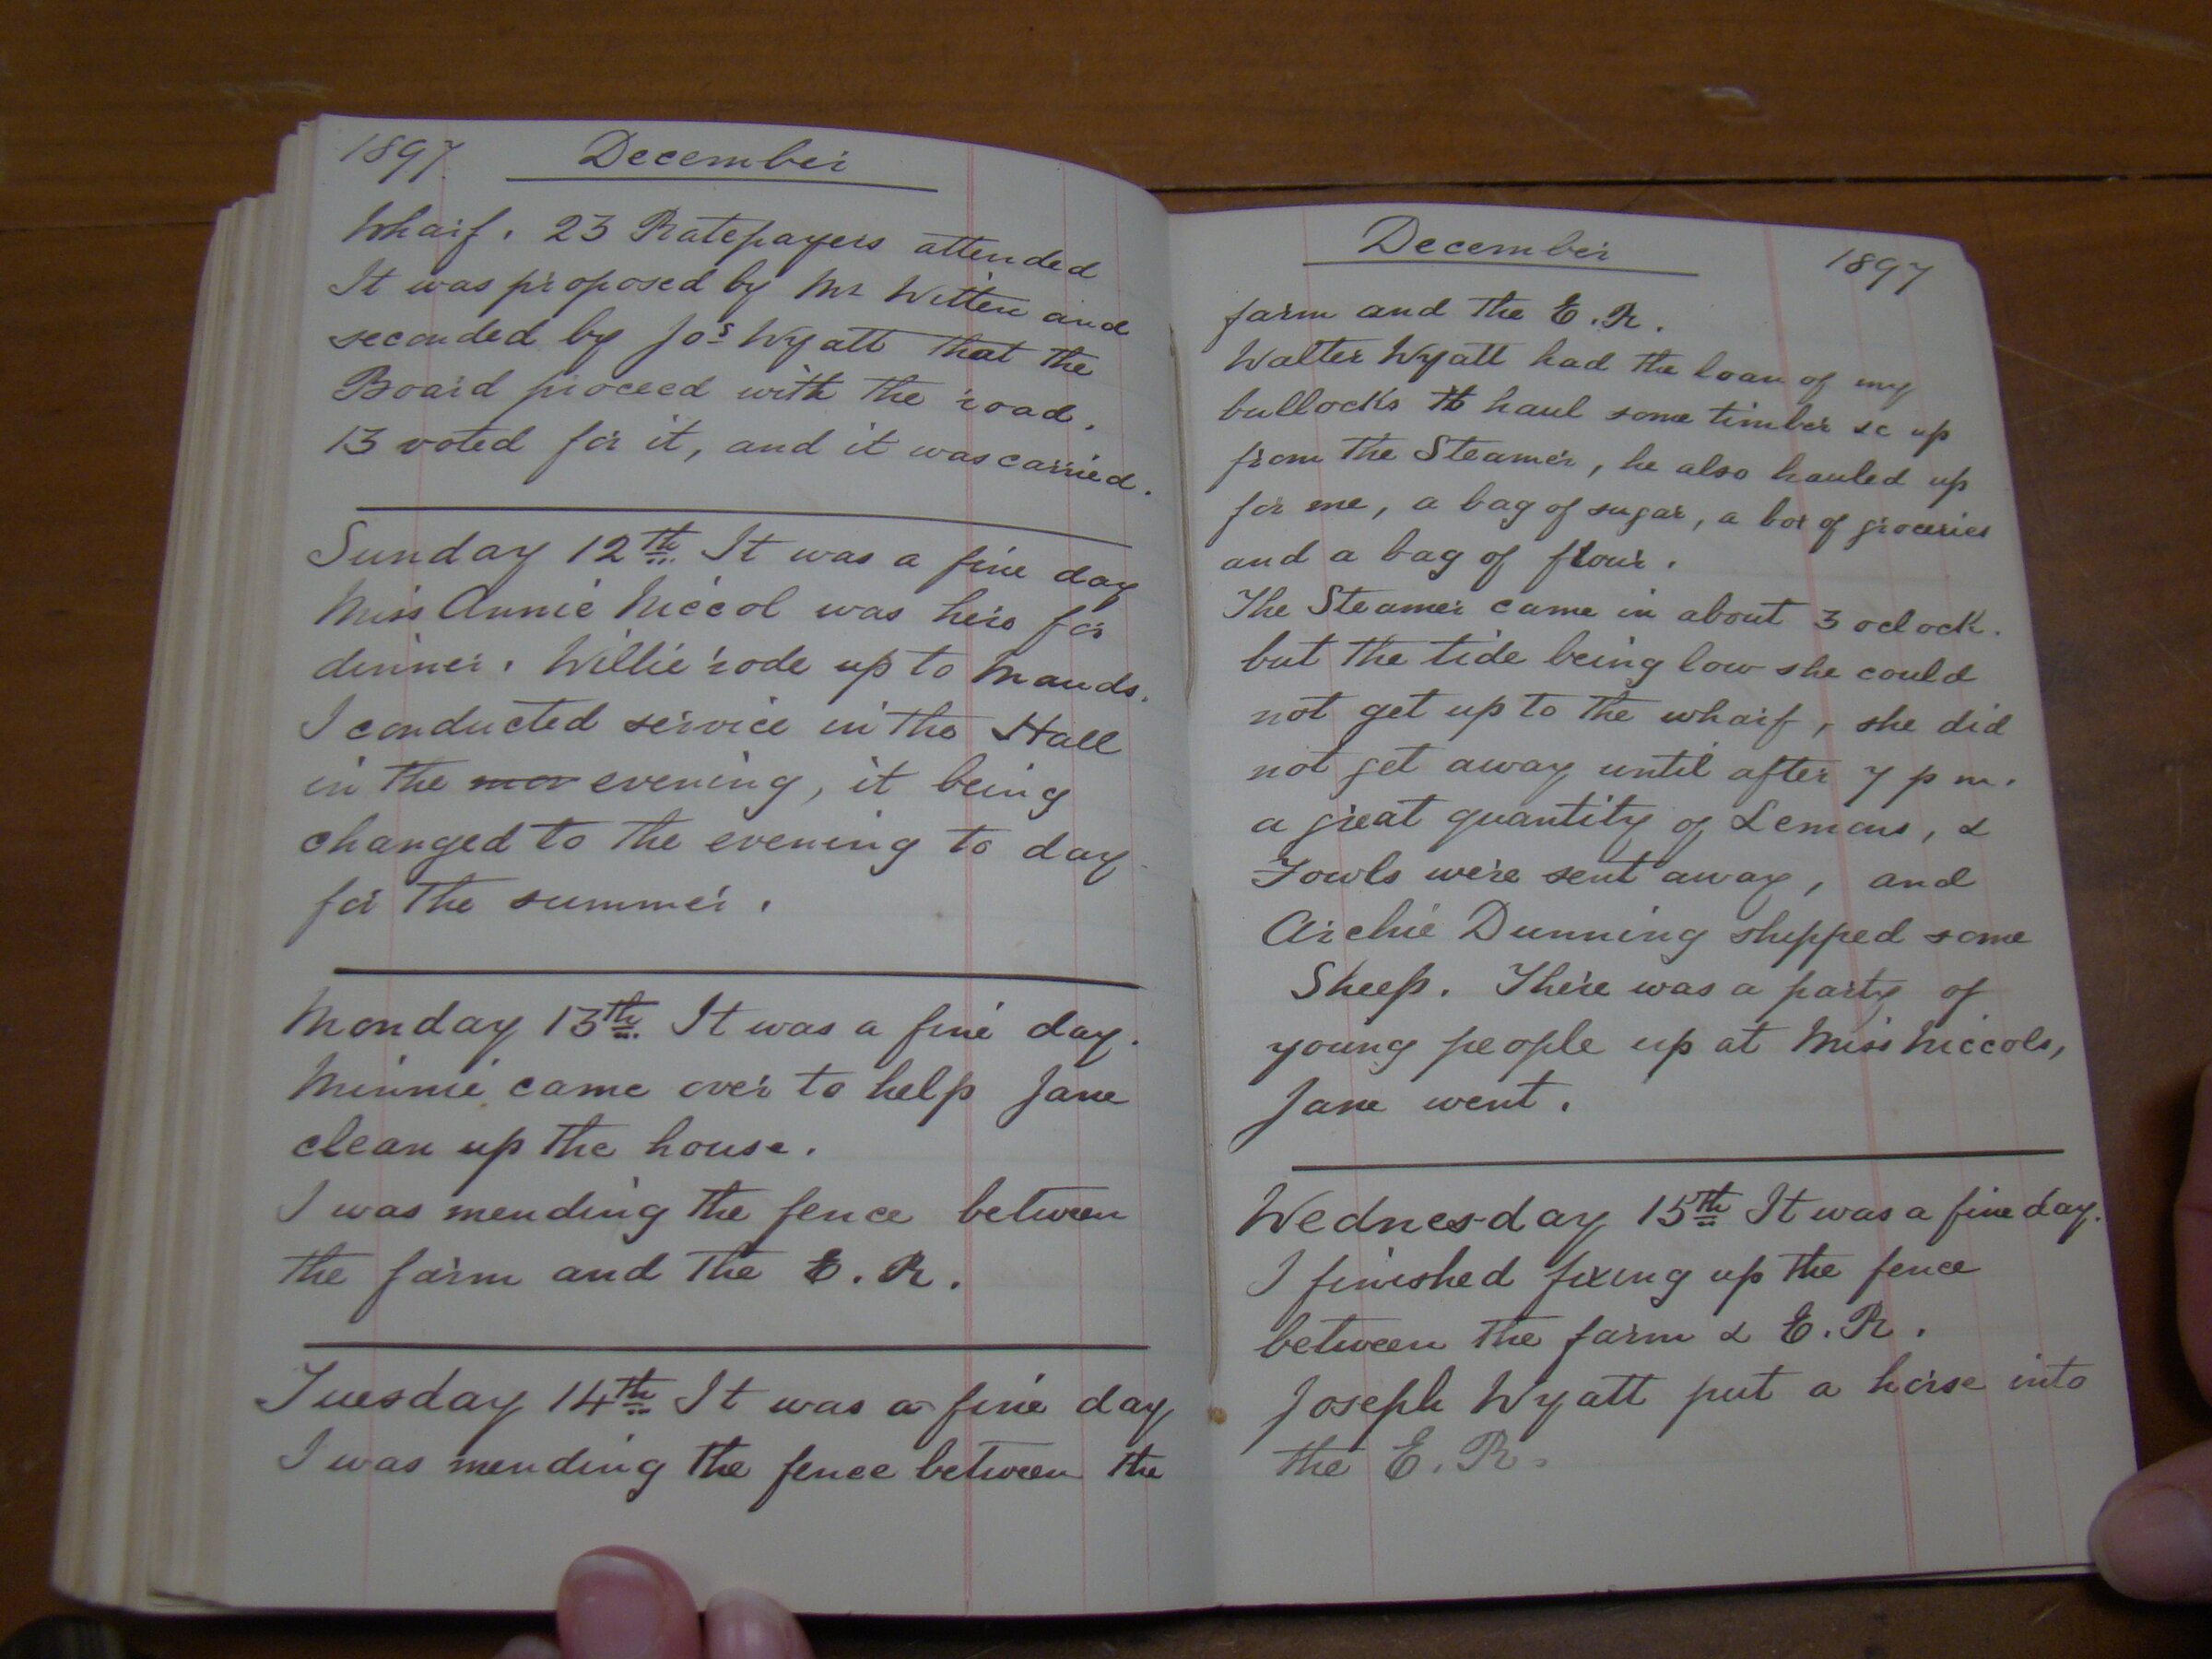 1897. December
Wharf. 23 Ratepayers attended
It was proposed by Mr Witten and
seconded by Jos Wyatt that the
Board proceed with the road.
13 voted for it, and it was carried.
Sunday 12th It was a fine day
Miss Annie Niccol was here for
dinner. Willie rode up to Mauds.
I conducted service in the Hall
in the mor evening, it being
changed to the evening to day
for the summer.
Monday 13th It was a fine day.
Minnie came over to help Jane
clean up the house.
I was mending the fence between
the farm and the E. R.
Tuesday 14th It was a fine day
I was mending the fence between the
December 1897
farm and the E. R.
Walter Wyatt had the loan of my
bullocks to haul some timber &c up
from the Steamer, he also hauled up
for me, a bag of sugar, a box of groceries
and a bag of flour.
The Steamer came in about 3 oclock.
but the tide being low she could
not get up to the wharf, she did
not get away until after 7 p m.
a great quantity of Lemons, &
Fowls were sent away, and
Archie Dunning shipped some
Sheep. There was a party of
young people up at Miss Niccols,
Jane went.
Wednesday 15th It was a fine day.
I finished fixing up the fence
between the farm & E. R.
Joseph Wyatt put a horse into
the E. R.